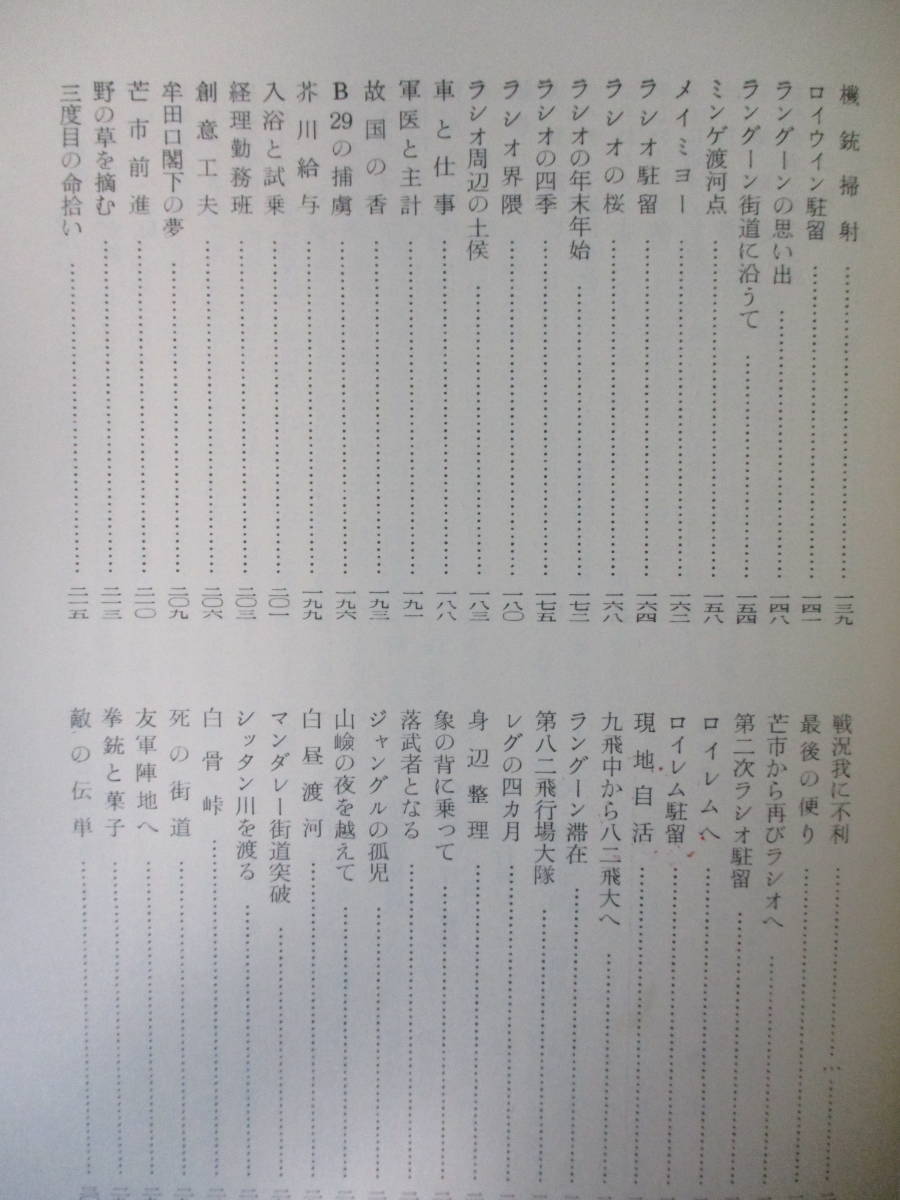 機銃掃射……一三九
ロイウイン駐留……一四一
ラングーンの思い出……一四八
ラングーン街道に沿うて……一五四
ミンゲ渡河点……一五八
メイミヨー……一六二
ラシオ駐留……一六四
ラシオの桜……一六八
ラシオの年末年始……一七二
ラシオの四季……一七五
ラシオ界隈……一八〇
ラシオ周辺の土侯……一八三
車と仕事……一八八
軍医と主計……一九一
故国の香……一九三
B29の捕虜……一九六
芥川給与……一九九
入浴と試乗……二〇一
経理勤務班……二〇三
創意工夫……二〇六
牟田口閣下の夢……二〇九
芒市前進……二一〇
野の草を摘む……二一三
三度目の命拾い……二一五
戦況我に不利
最後の便り
芒市から再びラシオへ
第二次ラシオ駐留
ロイレムへ
ロイレム駐留
現地自活
九飛中から八二飛大へ
ラングーン滞在
第八二飛行場大隊
レグの四カ月
身辺整理
象の背に乗って
落武者となる
ジャングルの孤児
山嶮の夜を越えて
白昼渡河
マンダレー街道突破
シッタン川を渡る
白骨峠
死の街道
友軍陣地へ
拳銃と菓子
敵の伝単